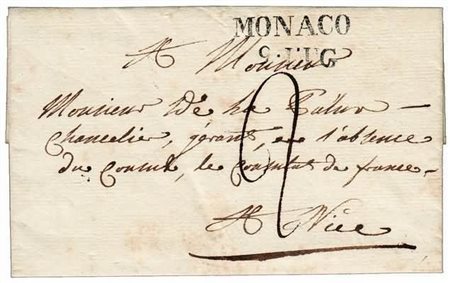 MONACO
9 LUG
A Monsieur
Monsieur De La
chancelier, gérant, en l'absence
du Consul, le consulat de france
A Nice
2